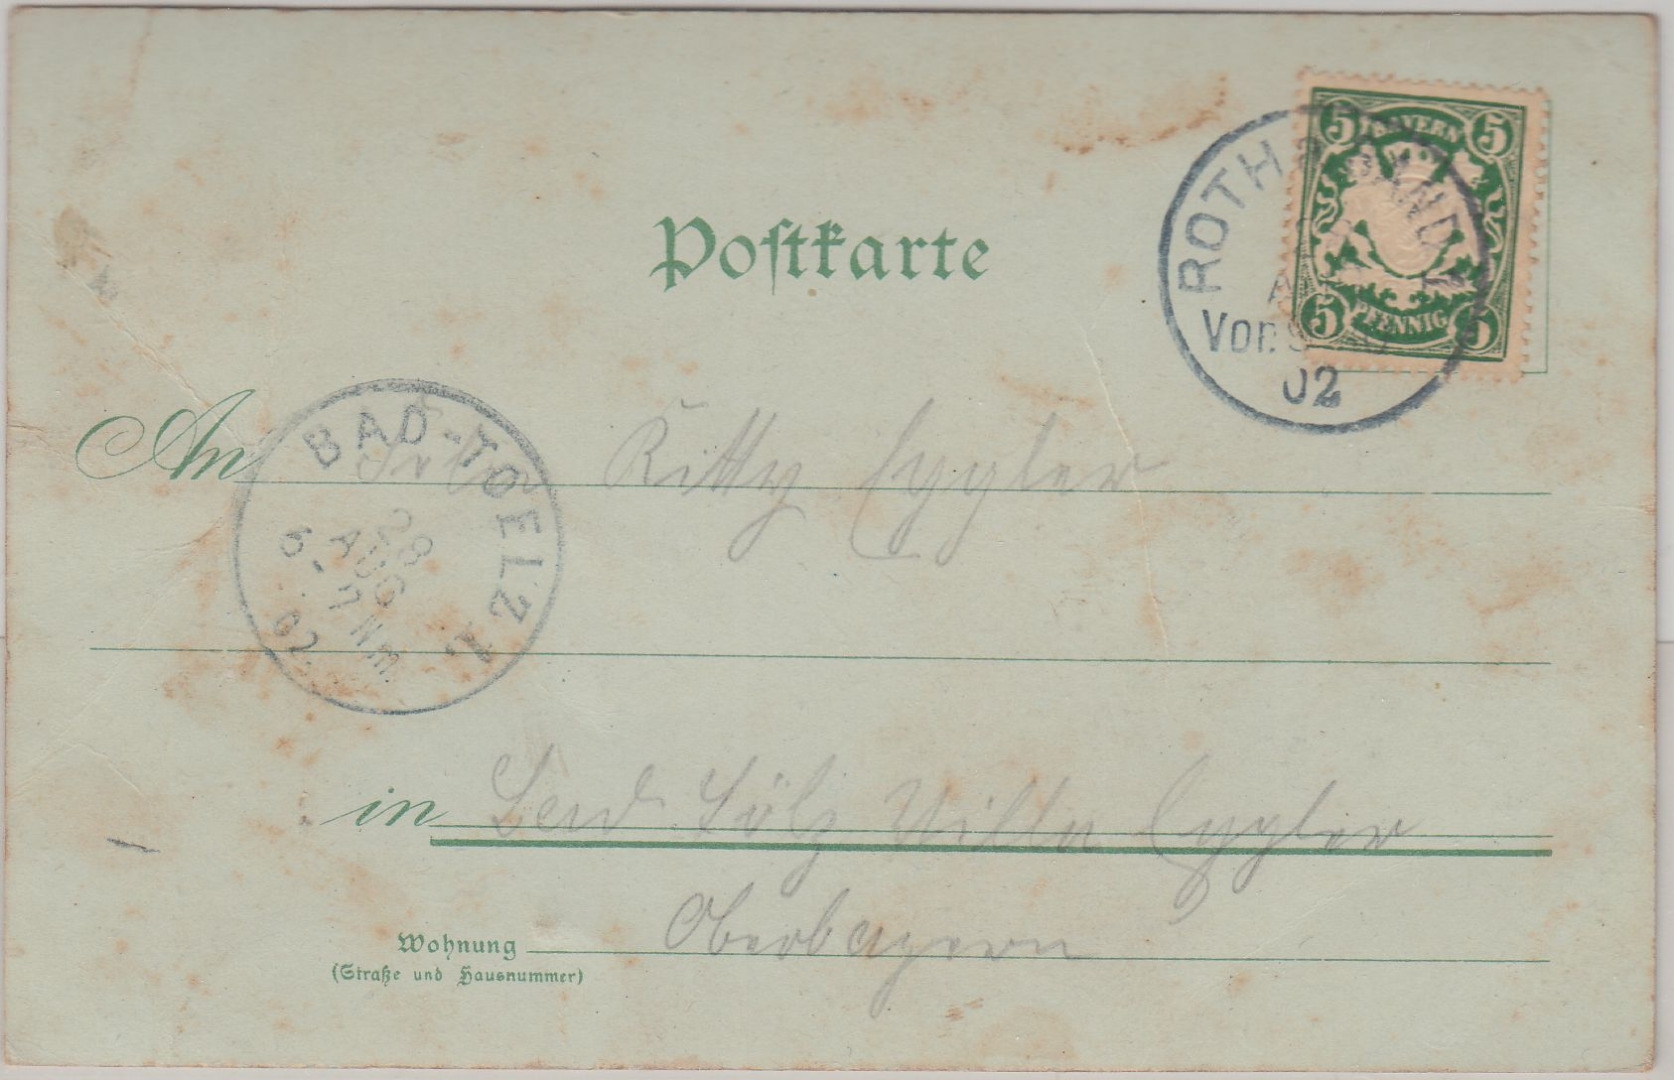 BAYERN
5 5
5 PFENNIG 5
ROTH SAND
Vor. 9
02
Postkarte
An Kitty
BAD-TOELZ 1.
28
AUG
6-7 Nm.
02.
in Bad Tölz Villa
Oberbayern
Wohnung
(Straße und Hausnummer)